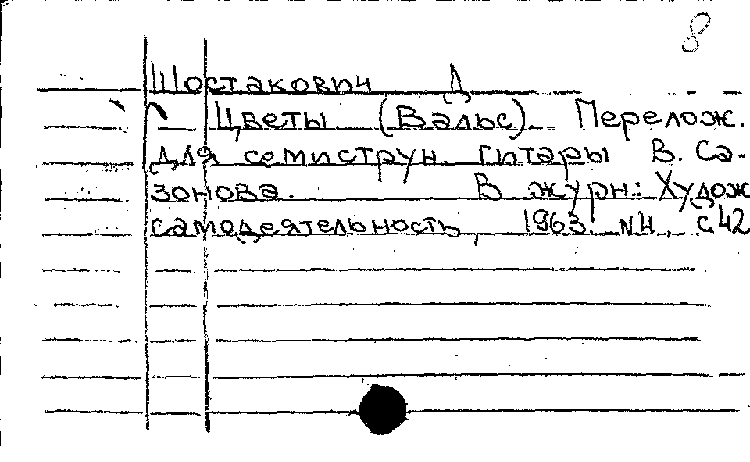 8
Шостакович Д
Цветы (Вальс). Перелож.
для семиструн. гитары В. Са-
зонова. В журн: Худож
самодеятельность, 1963. N4, с42